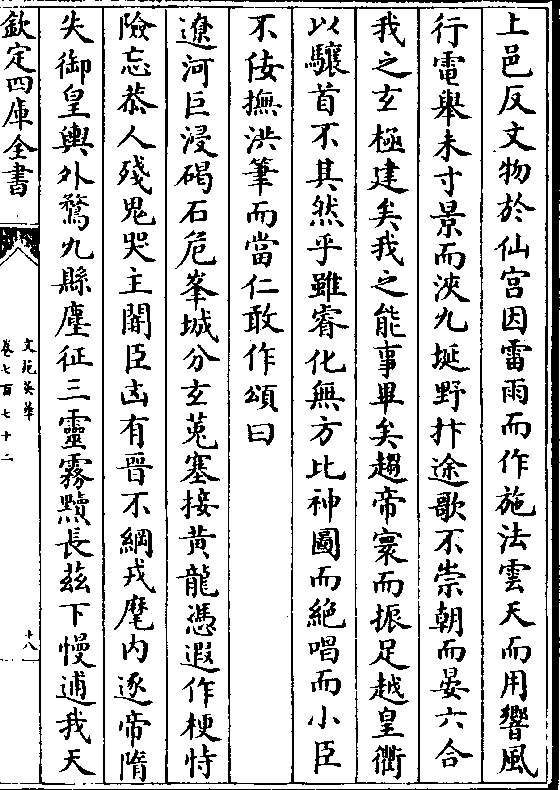 上邑反文物於仙宫因雷雨而作施法雲天而用響風
行電舉未寸景而浹九埏野抃途歌不崇朝而晏六合
我之玄極建矣我之能事畢矣趨帝寰而振足越皇衢
以驤首不其然乎雖睿化無方比神圖而絶唱而小臣
不佞撫洪筆而當仁敢作頌曰
遼河巨浸碣石危峯城分玄菟塞接黄龍憑遐作梗恃
險忘恭人殘鬼哭主闇臣凶有晉不綱戎麾内逐帝隋
失御皇輿外騖九縣塵征三靈霧黷長茲下慢逋我天
欽定四庫全書
文苑英華
卷七百七十二
十八